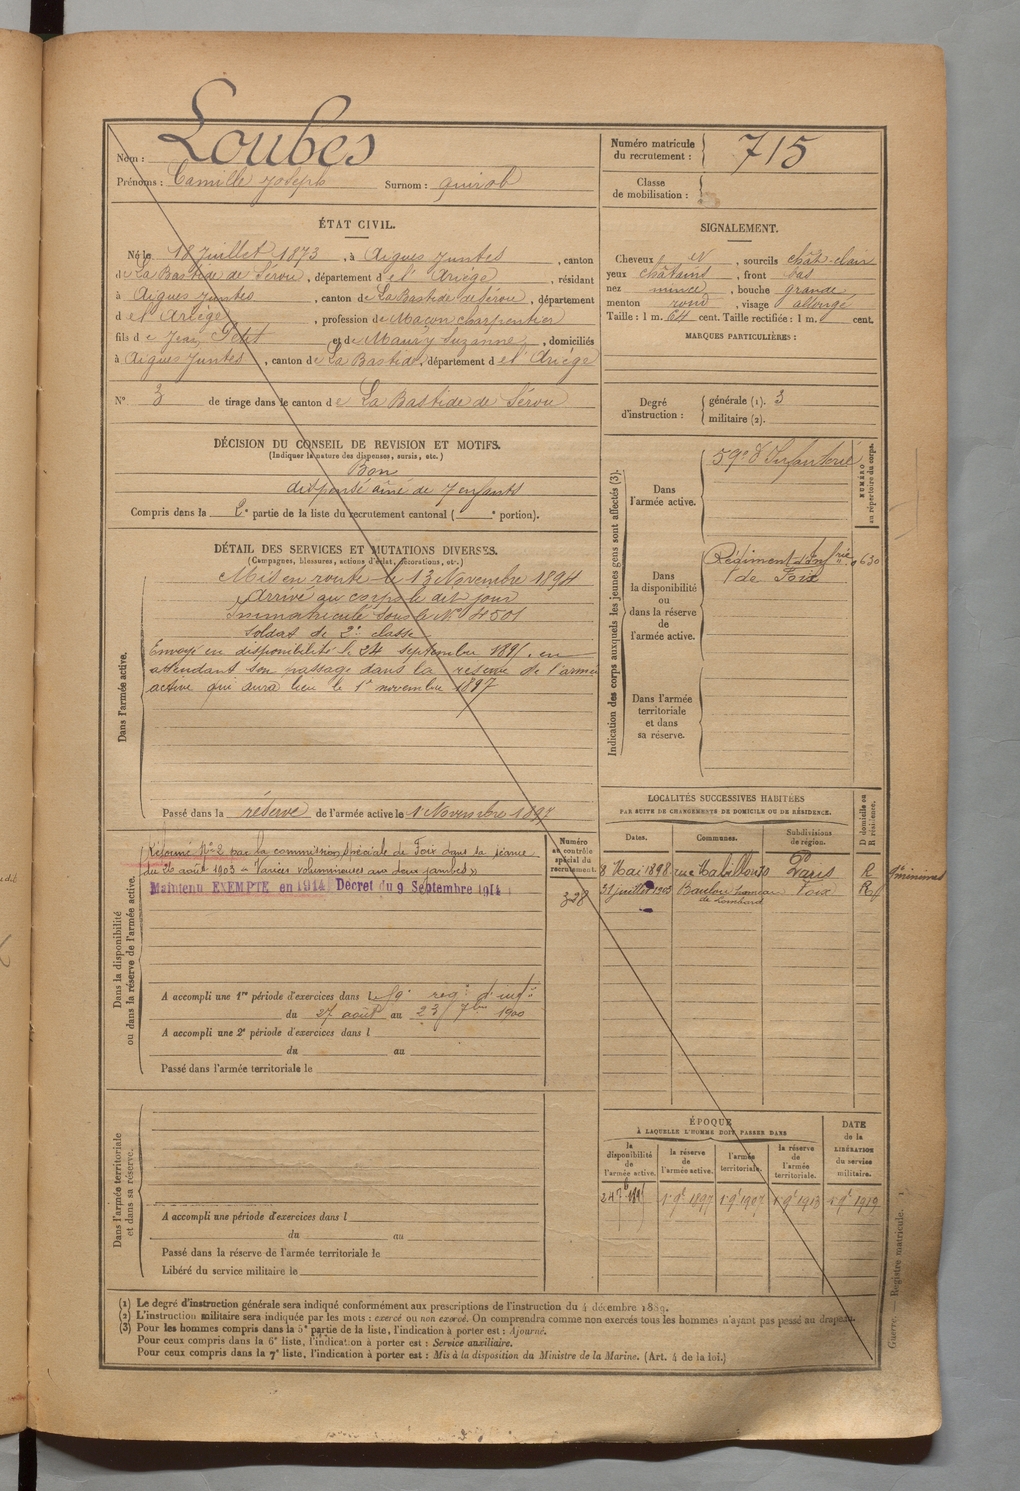 Nom : Loubes
Prénoms : Camille Joseph Surnom : quirob
Numéro matricule du recrutement : 715
Classe de mobilisation :
ÉTAT CIVIL.
Né le 18 Juillet 1873, à Aigues Juntes, canton
de La Bastide de Sérou, département d el'Ariège, résidant
à Aigues Juntes, canton de La Bastide de Sérou, département
d el'Ariège, profession de Maçon charpentier
fils d e Jean Petit et de Maury Suzanne, domiciliés
à Aigues Juntes, canton de La Bastide, département d el'Ariège
N° 3 de tirage dans le canton de La Bastide de Sérou
SIGNALEMENT.
Cheveux et, sourcils chât-clair
yeux châtains, front bas
nez mince, bouche grande
menton rond, visage allongé
Taille : 1 m. 64 cent. Taille rectifiée : 1 m. cent.
MARQUES PARTICULIÈRES :
Degré d'instruction : générale (1). 3
militaire (2).
DÉCISION DU CONSEIL DE REVISION ET MOTIFS.
(Indiquer la nature des dispenses, sursis, etc.)
Bon
dispensé aîné de 7 enfants
Compris dans la 2e partie de la liste du recrutement cantonal ( e portion).
DÉTAIL DES SERVICES ET MUTATIONS DIVERSES.
(Campagnes, blessures, actions d'éclat, décorations, etc.)
Dans l'armée active.
Mis en route le 13 Novembre 1894
Arrivé au corps le dit jour
Immatriculé sous le N° 4501
Soldat de 2e classe
Envoyé en disponibilité le 24 septembre 189 en
attendant son passage dans la réserve de l'armée
active qui aura lieu le 1er novembre 1897
Passé dans la réserve de l'armée active le 1er Novembre 1897
Indication des corps auxquels les jeunes gens sont affectés (3).
Dans l'armée active.
59e d'Infanterie
NUMÉRO au répertoire du corps.
Dans la disponibilité ou dans la réserve de l'armée active.
Régiment d'Infrie 0630
de Foix
Dans l'armée territoriale et dans sa réserve.
Dans la disponibilité ou dans la réserve de l'armée active.
Réformé N° 2 par la commission spéciale de Foix dans la séance
du 26 août 1903 - Varices volumineuses aux deux jambes »
Maintenu EXEMPTE en 1914 Décret du 9 Septembre 1914
Numéro au contrôle spécial du recrutement.
328
A accompli une 1re période d'exercices dans l e 59e régt d'infie
du 27 août au 23 7bre 1900
A accompli une 2e période d'exercices dans l
du au
Passé dans l'armée territoriale le
LOCALITÉS SUCCESSIVES HABITÉES
PAR SUITE DE CHANGEMENTS DE DOMICILE OU DE RÉSIDENCE.
Dates. Communes. Subdivisions de région. D domicile ou R résidence.
8 Mai 1898 rue Mabillon 30 Paris R
31 juillet 1903 Baulou hameau de Lombard Foix R
Dans l'armée territoriale et dans sa réserve.
A accompli une période d'exercices dans l
du au
Passé dans la réserve de l'armée territoriale le
Libéré du service militaire le
ÉPOQUE
À LAQUELLE L'HOMME DOIT PASSER DANS
la disponibilité de l'armée active. la réserve de l'armée active. l'armée territoriale. la réserve de l'armée territoriale. DATE de la LIBÉRATION du service militaire.
1er 9bre 1897 1er 9bre 1907 1er 9bre 1913 1er 9bre 1919
(1) Le degré d'instruction générale sera indiqué conformément aux prescriptions de l'instruction du 4 décembre 1889.
(2) L'instruction militaire sera indiquée par les mots : exercé ou non exercé. On comprendra comme non exercés tous les hommes n'ayant pas passé au drapeau.
(3) Pour les hommes compris dans la 5e partie de la liste, l'indication à porter est : Ajourné.
Pour ceux compris dans la 6e liste, l'indication à porter est : Service auxiliaire.
Pour ceux compris dans la 7e liste, l'indication à porter est : Mis à la disposition du Ministre de la Marine. (Art. 4 de la loi.)
Guerre. — Registre matricule.